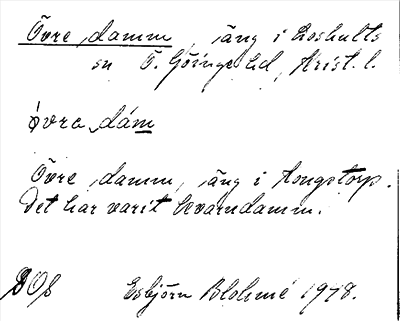 Övre damm, äng i Loshults
sn Ö. Göinge hd, Krist. l.
övra dám
Övre damm, äng i Kongstorp.
Det har varit kvarndamm.
Esbjörn Blohmé 1978.